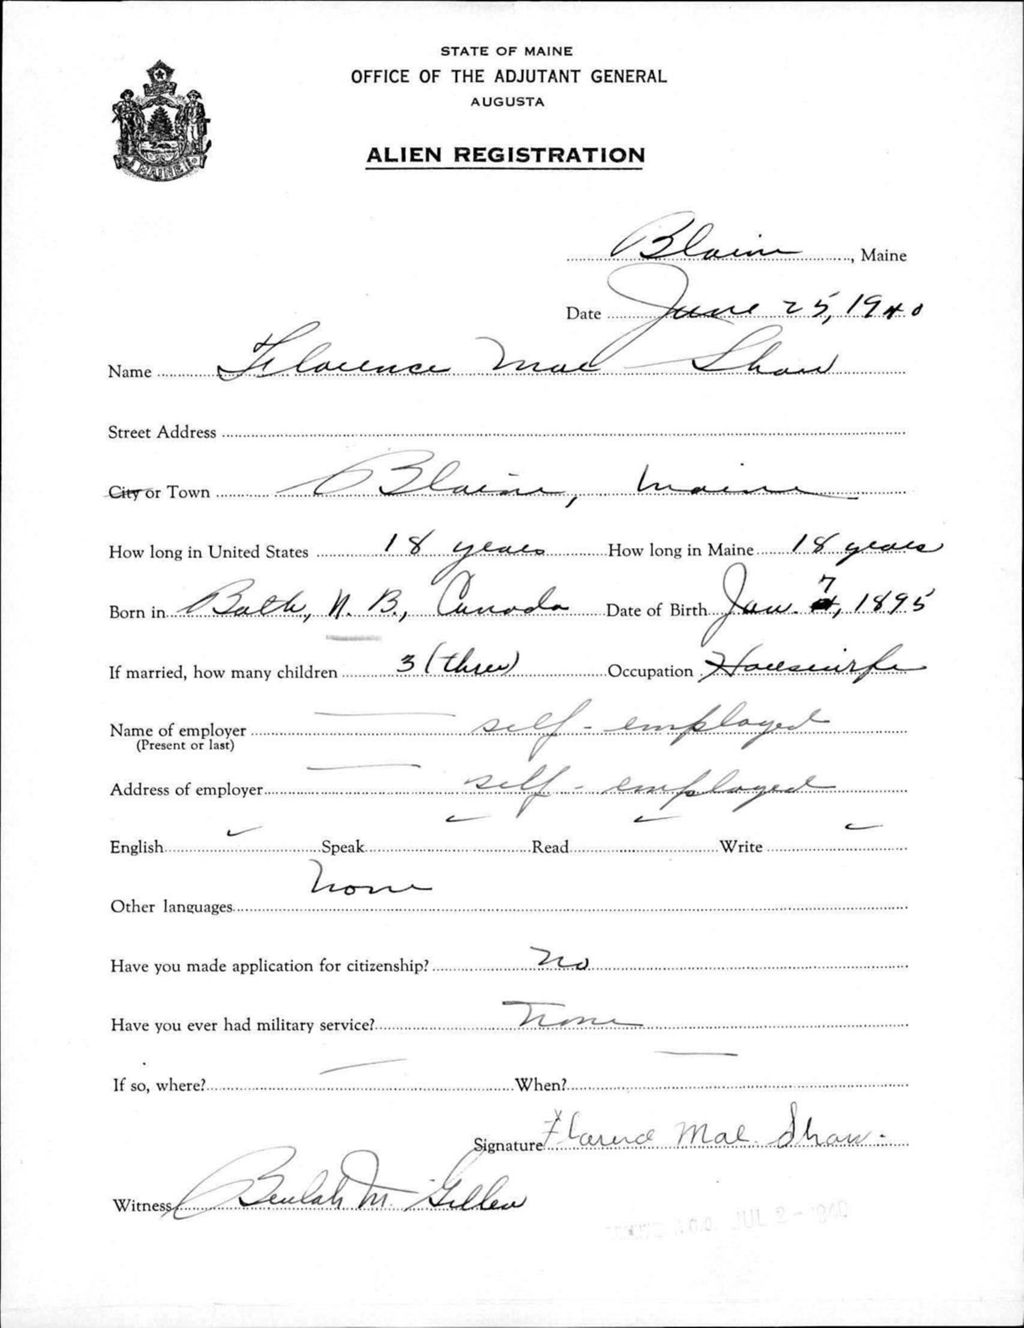 STATE OF MAINE
OFFICE OF THE ADJUTANT GENERAL
AUGUSTA
ALIEN REGISTRATION
MAINE
Blaine, Maine
Date June 25, 1940
Name Florence Mae Shaw
Street Address
City or Town Blaine, Maine
How long in United States 18 years How long in Maine 18 years
Born in Bath, N. B., Canada Date of Birth Jan. 7, 1895
If married, how many children 3 (three) Occupation Housewife
Name of employer — self-employed
(Present or last)
Address of employer — self-employed
English ✓ Speak ✓ Read ✓ Write ✓
Other languages None
Have you made application for citizenship? No
Have you ever had military service? None
If so, where? — When? —
Signature Florence Mae Shaw.
Witness Beulah M. Gillen
A.G.O. JUL 2 - 1940